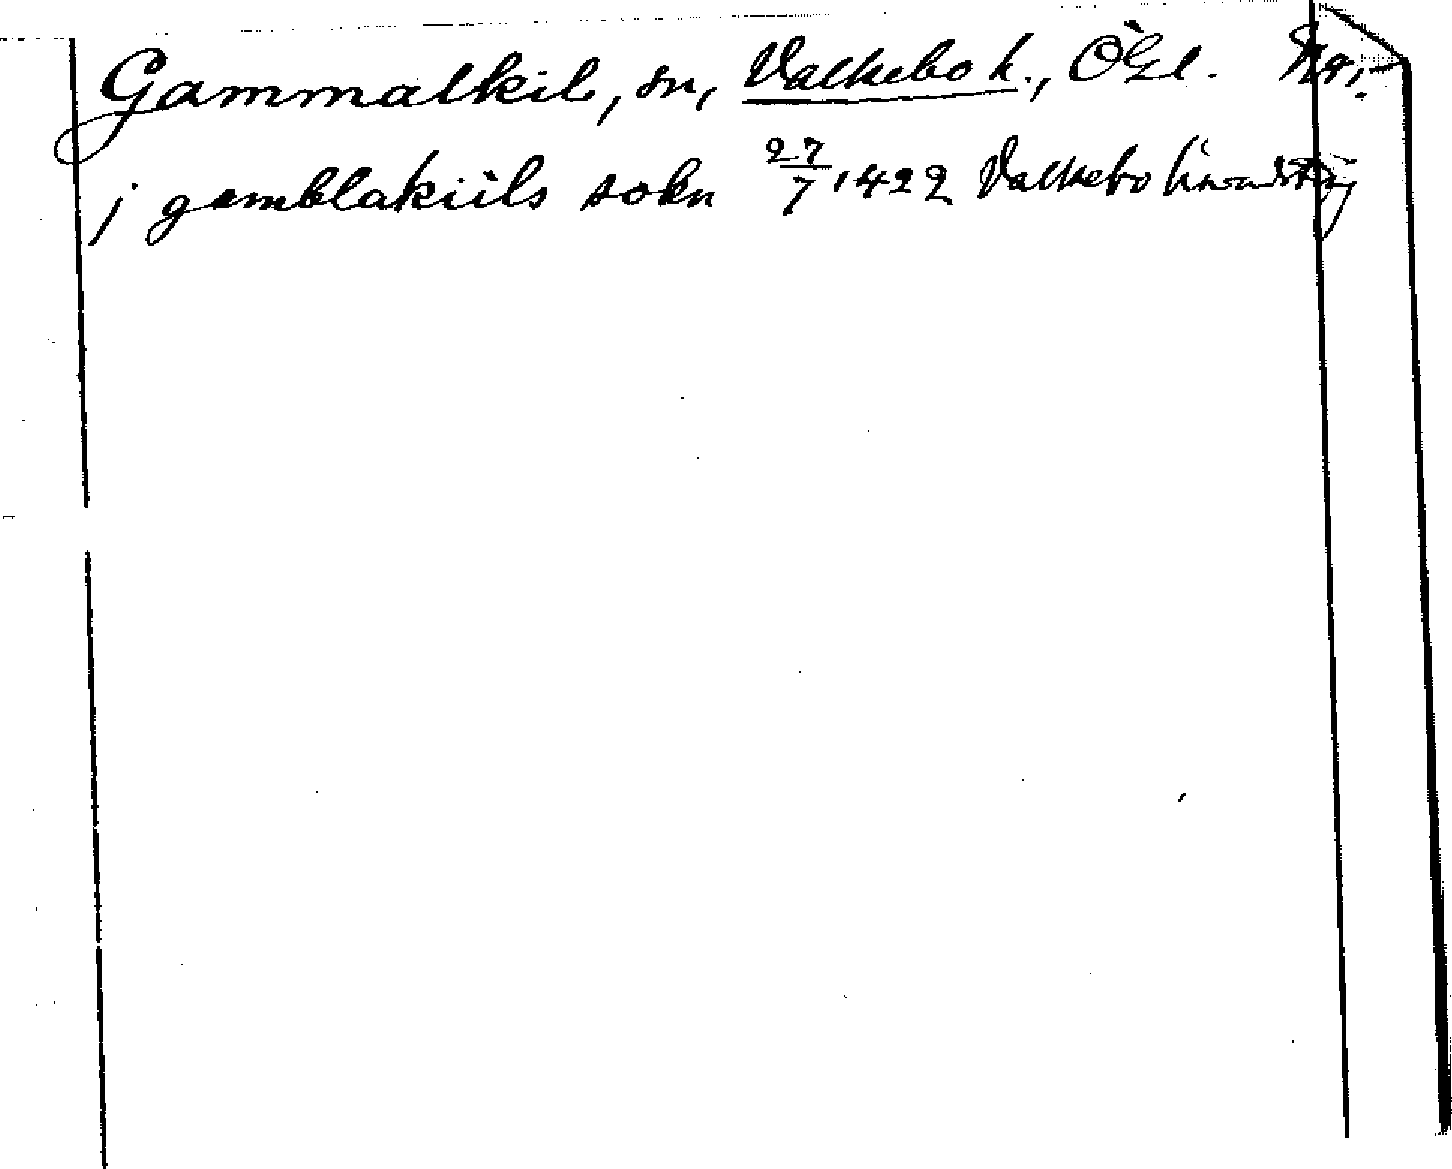 Gammalkil, sn, Valkebo h., ÖGl.
j gamblakiils sokn 27/7 1422 Valkebo